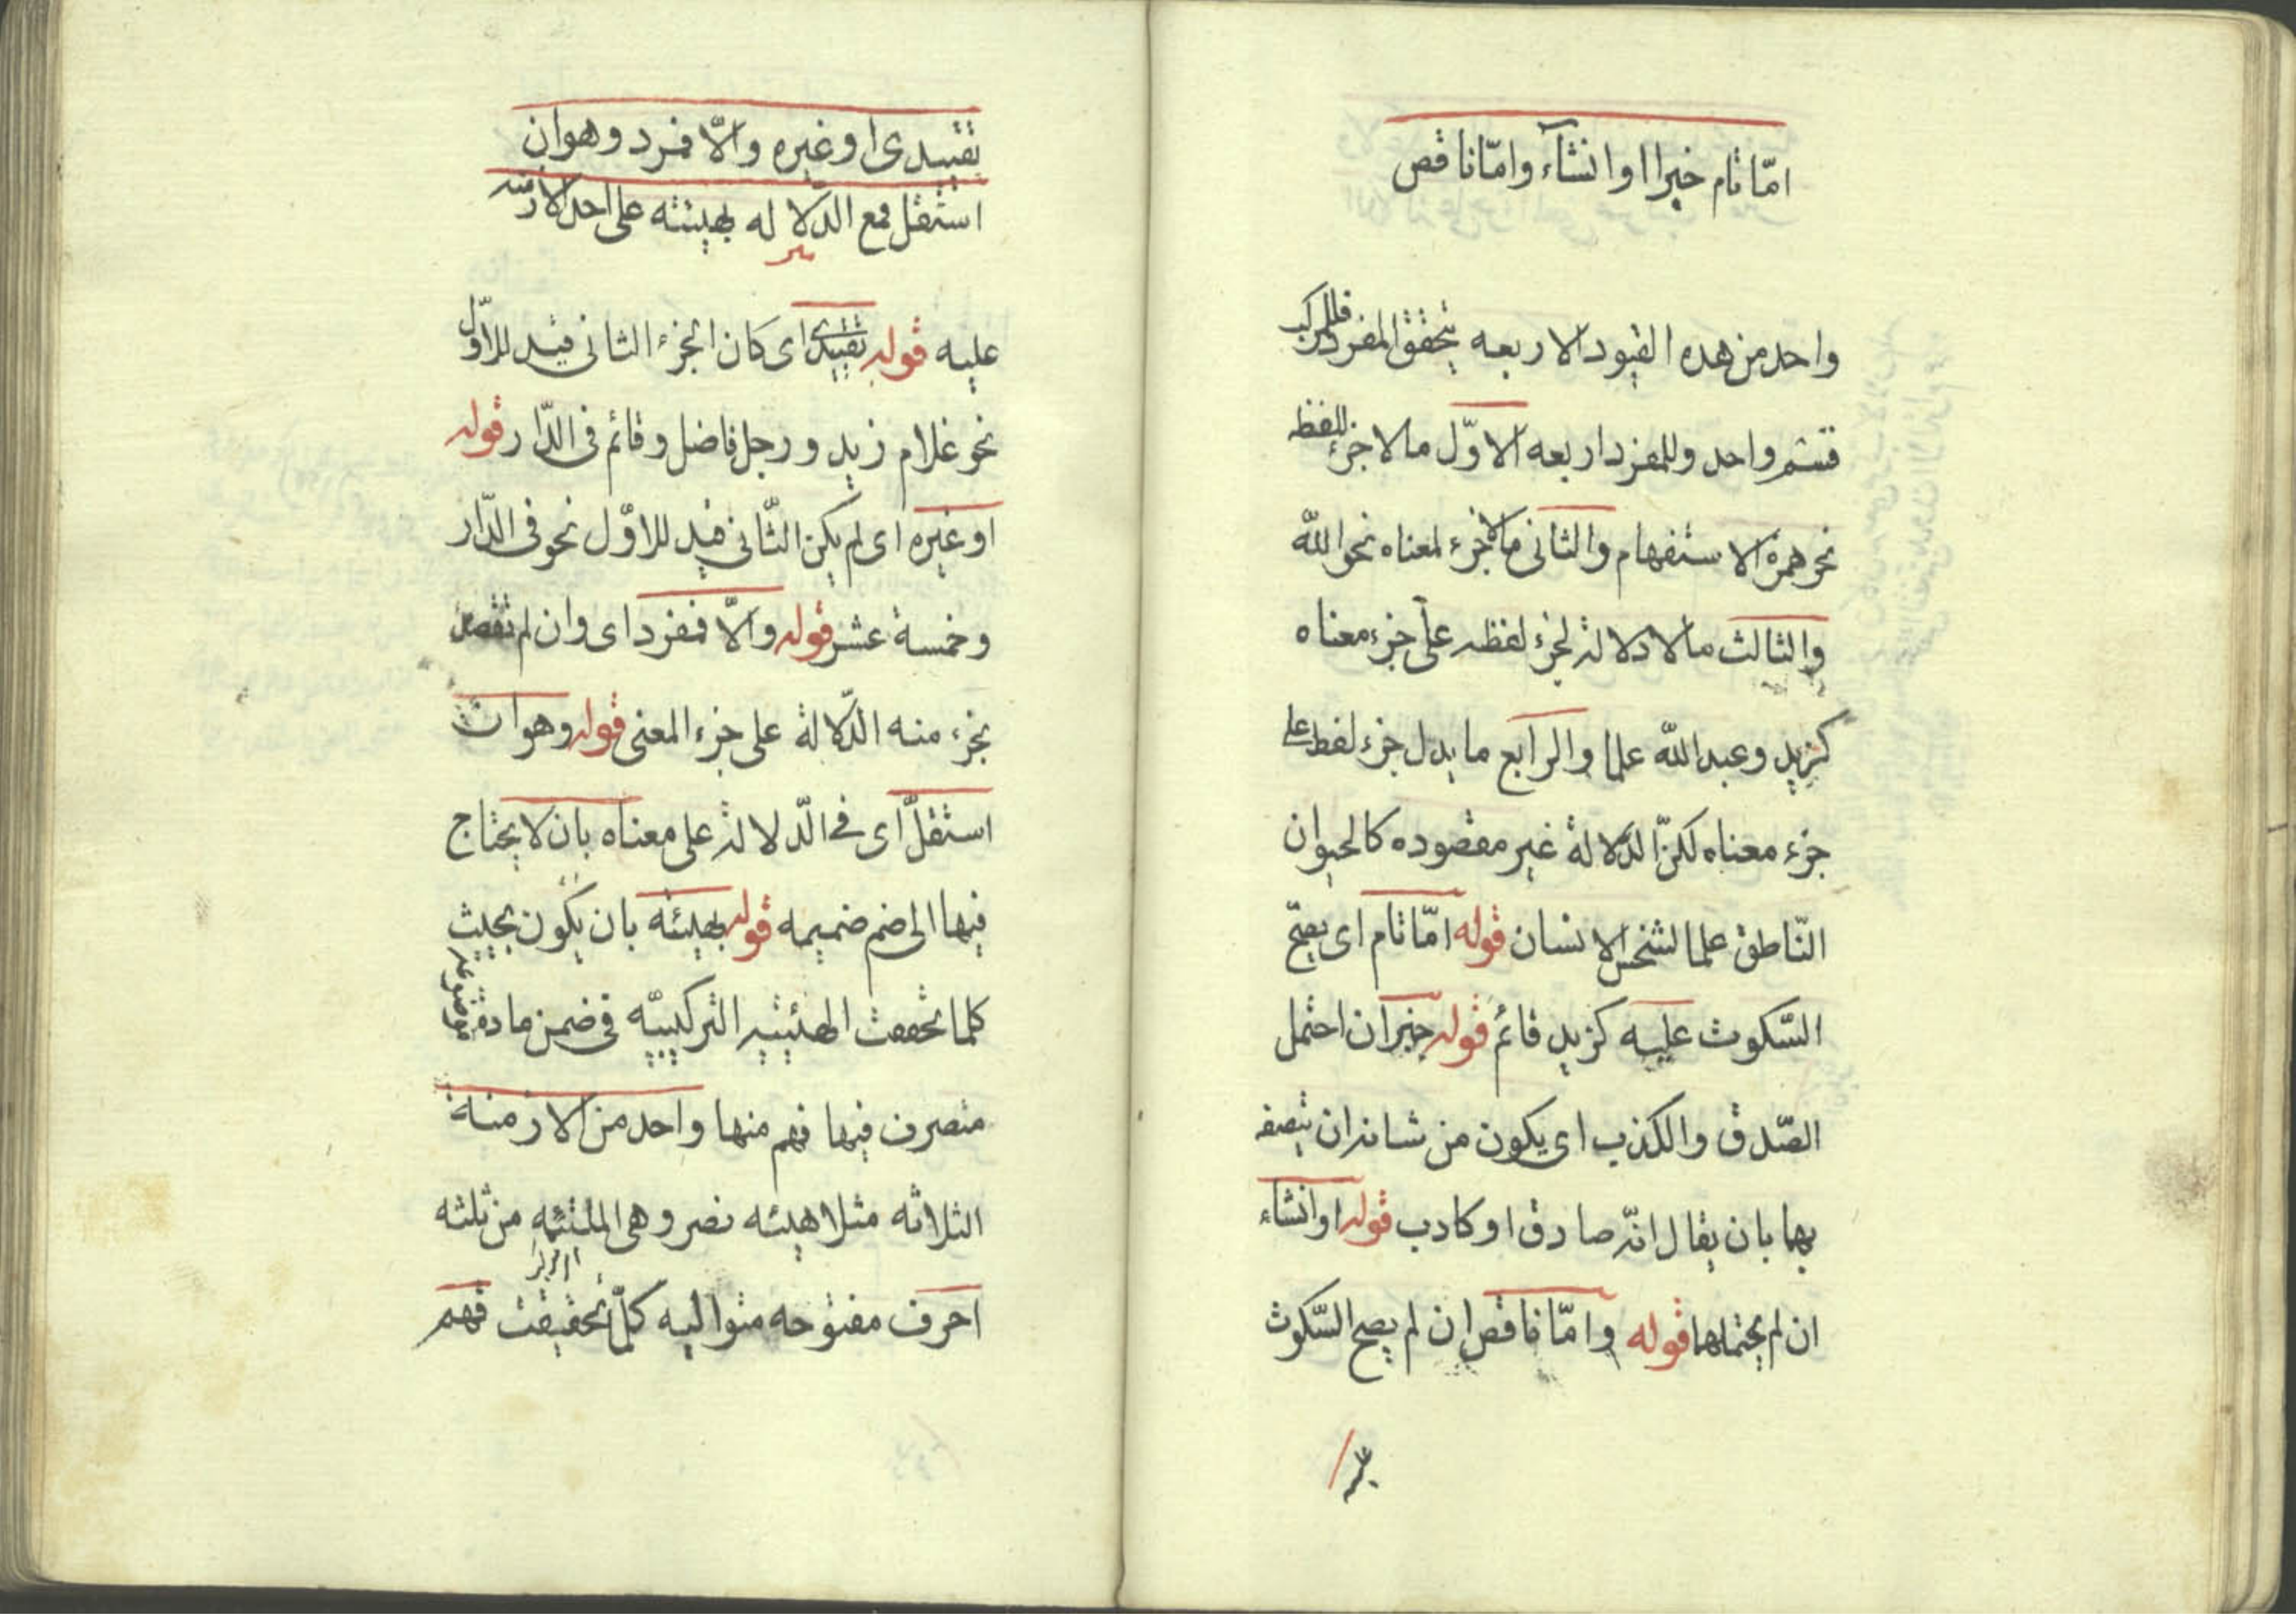 امّا تام خبرا او انشآء وامّا ناقص
واحد من هذه القيود الاربعه يتحقق المفرد فللمركب
قسم واحد وللمفرد اربعه الاوّل مالا جزء للفظه
نحو همزة الاستفهام والثانى مالا جزء لمعناه نحو الله
والثالث مالا دلالة لجزء لفظه على جزء معناه
كزيد وعبدالله علما والرابع ما يدل جزء لفظه على
جزء معناه لكنّ الدلالة غير مقصوده كالحيوان
النّاطق علما لشخص الانسان قوله امّا تام اى يصحّ
السّكوت عليه كزيد قائم قوله خبر ان احتمل
الصّدق والكذب اى يكون من شانه ان يتصف
بهما بان يقال انّه صادق او كاذب قوله او انشاء
ان لم يحتملهما قوله وامّا ناقص ان لم يصح السّكوت
عليه
تقييدى او غيره والّا فمفرد وهو ان
استقل فمع الدّلاله بهيئته على احد الازمنه
عليه قوله تقييدى اى كان الجزء الثانى قيد للاوّل
نحو غلام زيد ورجل فاضل وقائم فى الدّار قوله
او غيره اى لم يكن الثّانى قيد للاوّل نحو فى الدّار
وخمسة عشر قوله والّا فمفرد اى وان لم تقصد
بجزء منه الدّلالة على جزء المعنى قوله وهو ان
استقلّ اى فى الدّلالة على معناه بان لا يحتاج
فيها الى ضم ضميمه قوله بهيئته بان يكون بحيث
كلما تحققت الهيئته التركيبيّه فى ضمن مادة موضوعه
متصرف فيها فهم منها واحد من الازمنة
الثلاثه مثلا هيئه نصر وهى المشتمله من ثلثه
احرف مفتوحه متواليه كلّما تحقيقت فهم